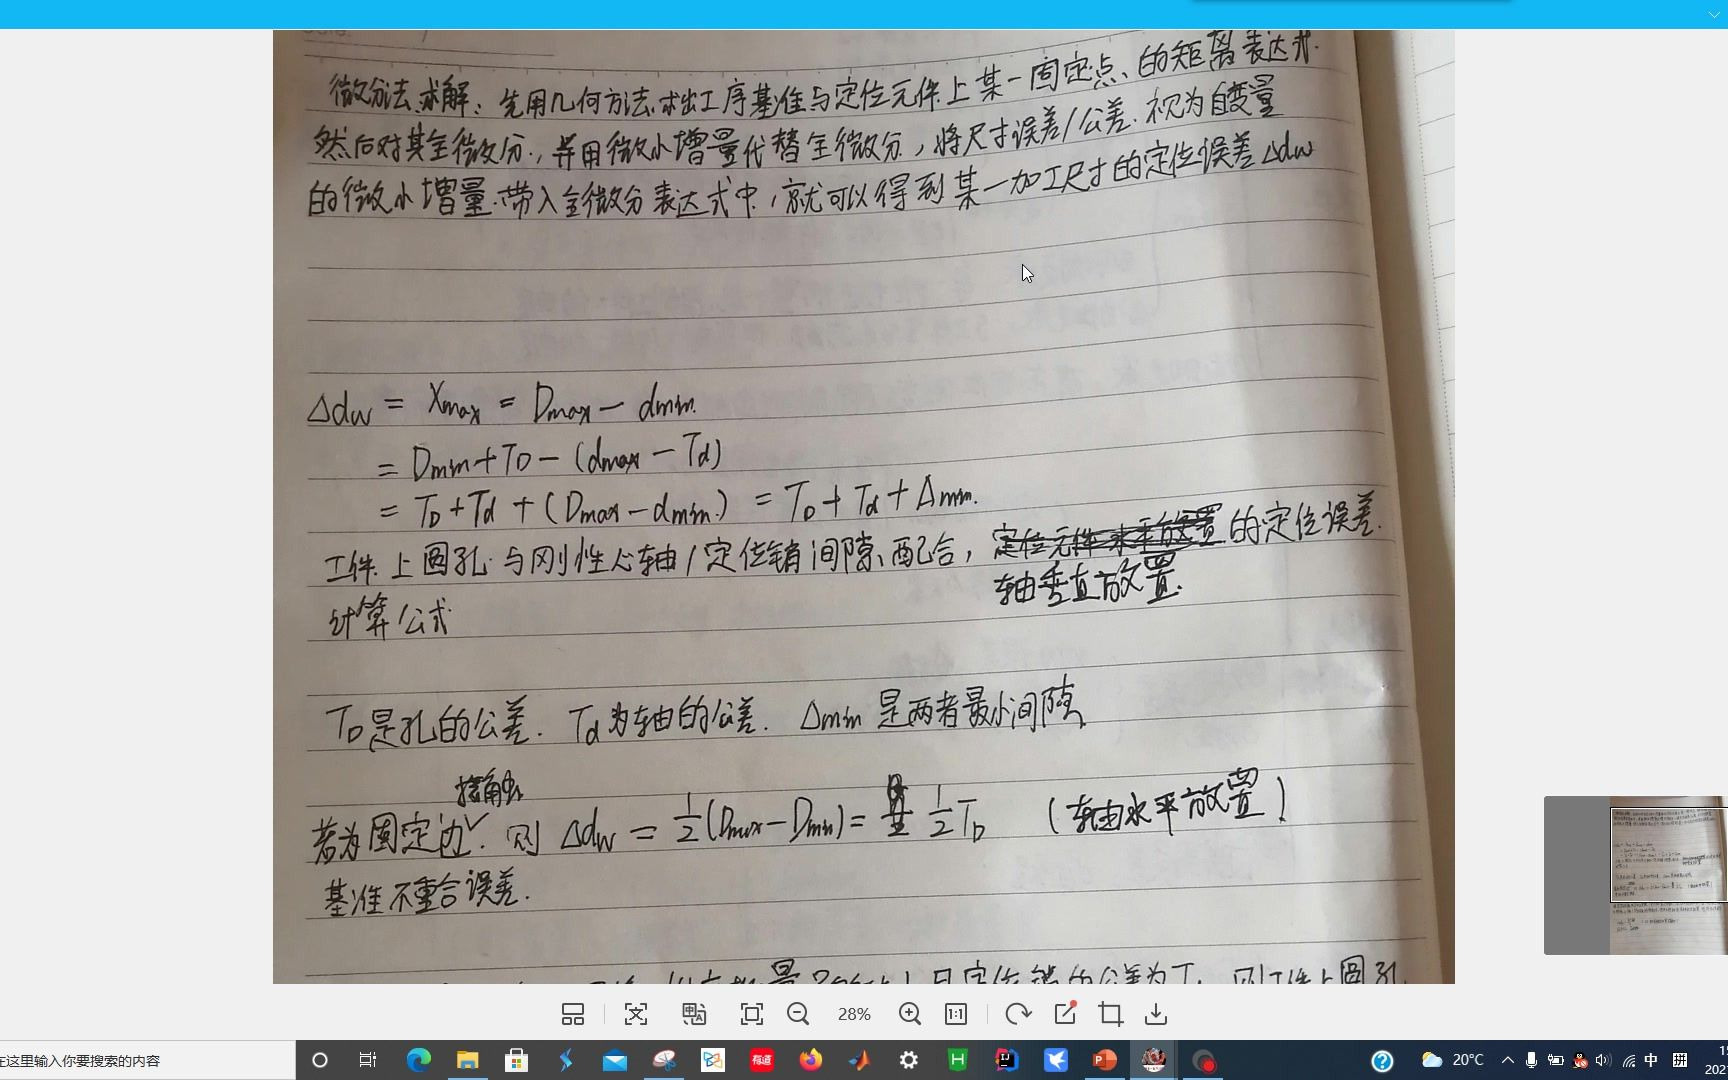 微分法求解：先用几何方法求出工序基准与定位元件上某一固定点、的矩离表达式.
然后对其全微分，并用微小增量代替全微分，将尺寸误差/公差.视为自变量
的微小增量.带入全微分表达式中，就可以得到某一加工尺寸的定位误差Δdw
Δdw = Xmax = Dmax - dmin.
= Dmin + TD - (dmax - Td)
= TD + Td + (Dmax - dmin) = TD + Td + Δmin.
工件上圆孔与刚性心轴/定位销间隙配合，定位元件水平放置的定位误差.
轴垂直放置.
计算公式
TD是孔的公差. Td为轴的公差. Δmin是两者最小间隙
接触
若为固定边. 则 Δdw = 1/2(Dmax - Dmin) = 1/2 TD （轴水平放置）
基准不重合误差.
定位销的公差为T，则工件上圆孔
28%
1:1
在这里输入你要搜索的内容
有道
20°C
中